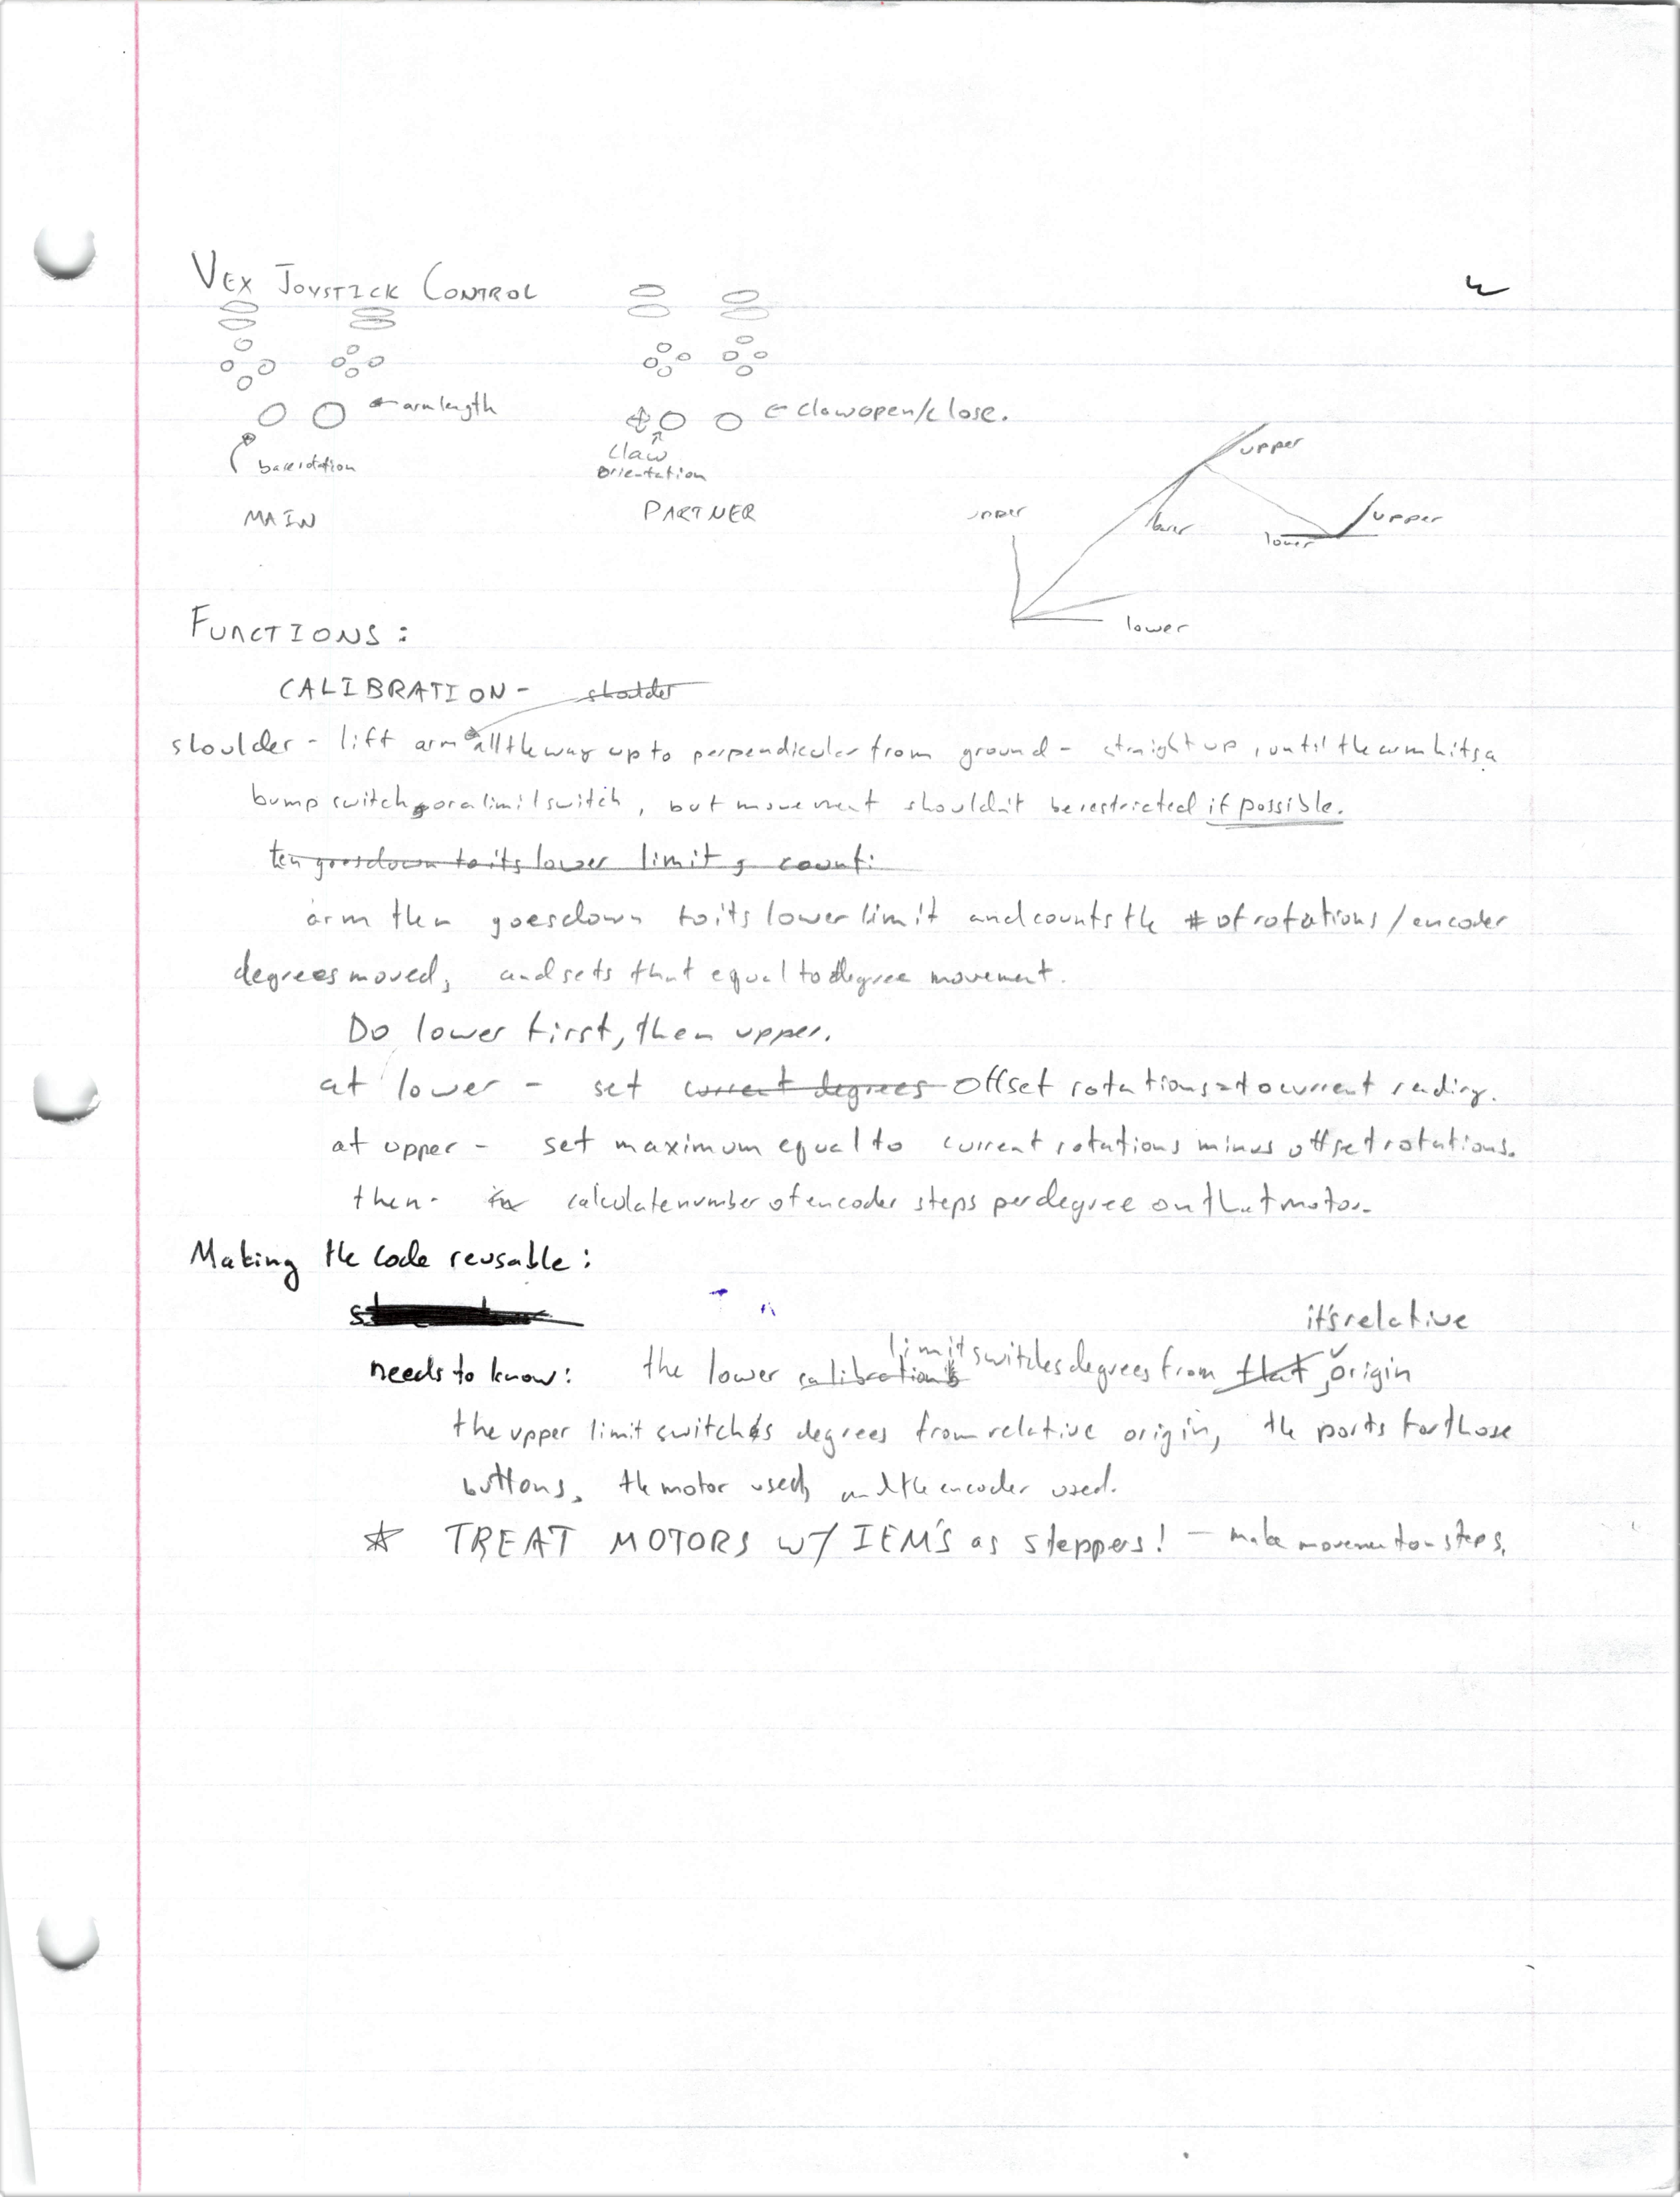 VEX JOYSTICK CONTROL
arm length
claw open/close.
base rotation
claw
orientation
MAIN
PARTNER
upper
lower
upper
lower
upper
lower
FUNCTIONS:
CALIBRATION - shoulder
shoulder - lift arm all the way up to perpendicular from ground - straight up, until the arm hits a
bump switch or a limit switch, but movement shouldn't be restricted if possible.
ten goes down to its lower limit, count:
arm then goes down to its lower limit and counts the # of rotations/encoder
degrees moved, and sets that equal to degree movement.
Do lower first, then upper.
at lower - set current degrees offset rotations = to current reading.
at upper - set maximum equal to current rotations minus offset rotations.
then - calculate number of encoder steps per degree on that motor.
Making the code reusable:
it's relative
needs to know: the lower calibration limit switches degrees from flat, origin
the upper limit switch's degrees from relative origin, the ports for those
buttons, the motor used, and the encoder used.
☆ TREAT MOTORS W/ IEM'S as steppers! - make movement on steps.